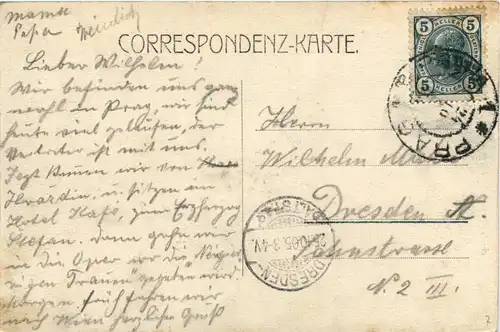 Mama
Papa Heinrich
CORRESPONDENZ-KARTE.
Lieber Wilhelm!
Wir befinden uns ganz
wohl in Prag, wir sind
heute viel gelaufen, der
Vertreter ist mit uns.
Jetzt kamen wir von
Hradčin u. sitzen im
Hotel Kafé, zum Erzherzog
Stefan. Dann gehn wir
in die Oper wo die
gen Frauen" gegeben wird
Morgen früh fahren wir
nach Wien herzliche Grüße
5 HELLER 5
5 5
PRAG
Herrn
Wilhelm
Dresden A.
strasse
N. 2 III.
DRESDEN-ALTST.
25.10.05. 3-4N.
2